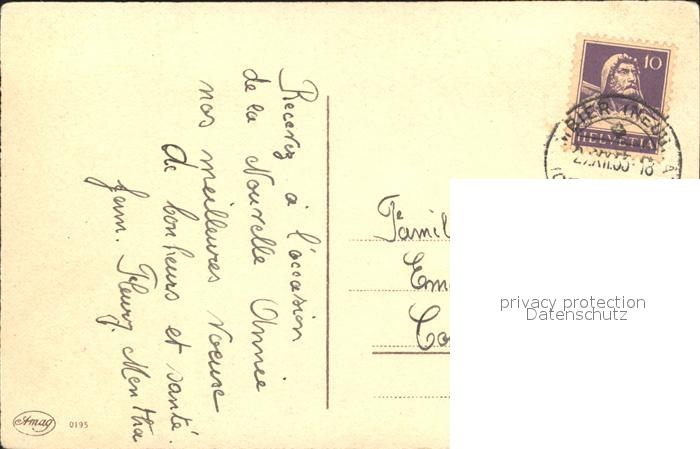 Recevez à l'occasion
de la Nouvelle Année
nos meilleures voeuxe
de bonheurs et santé.
fam. Fleury Mentha
Amag 0195
10
HELVETIA
Famil
Em
Co
privacy protection
Datenschutz